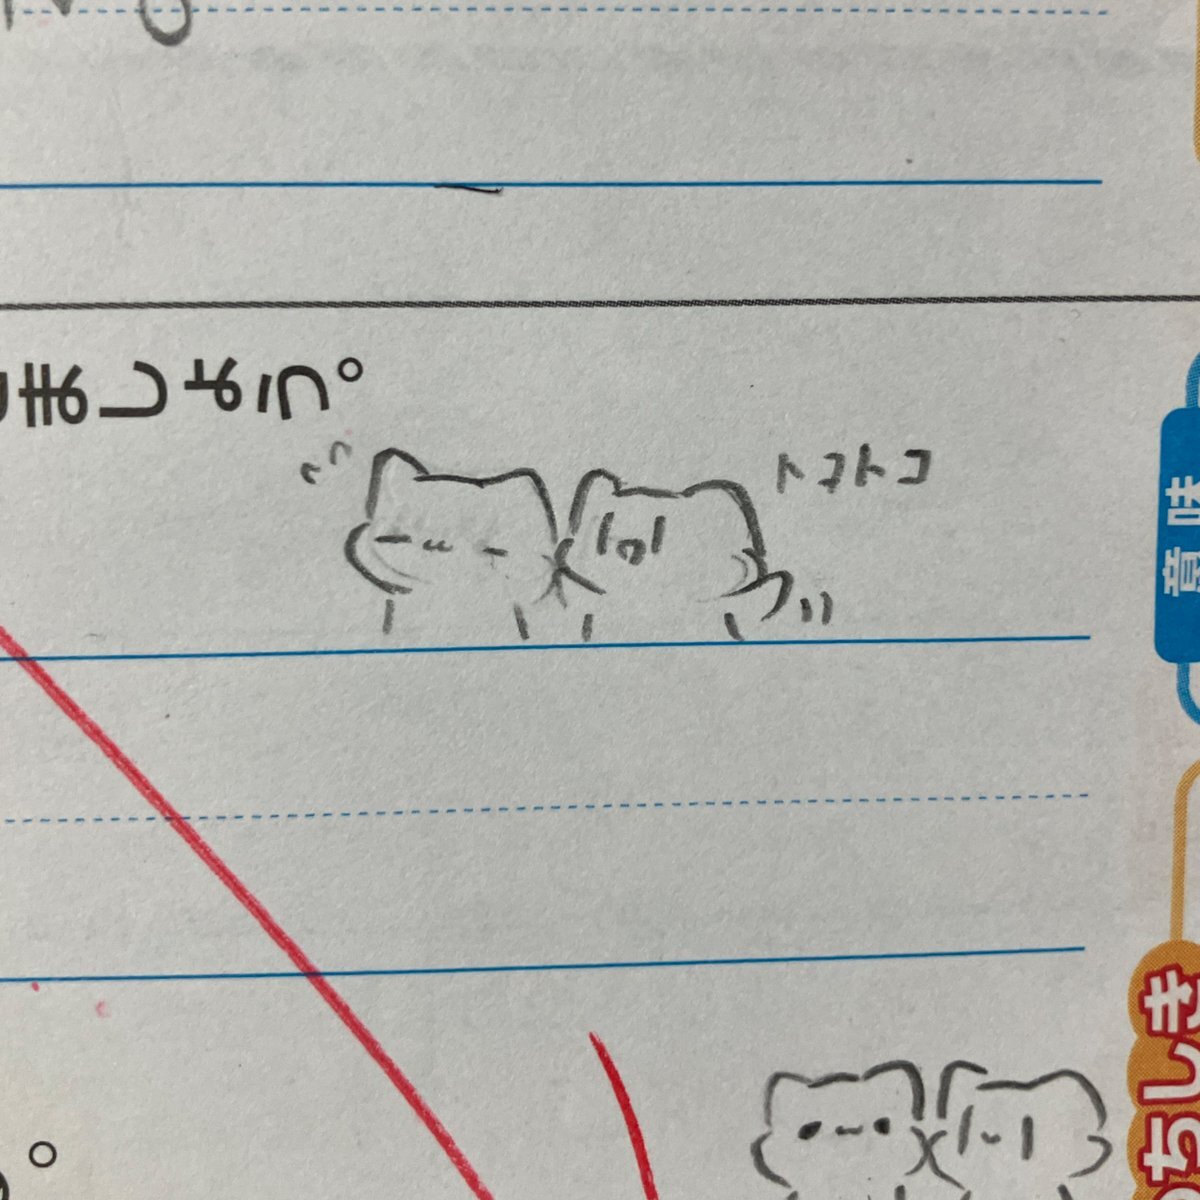 ましょう。
トコトコ
意味
ちしき